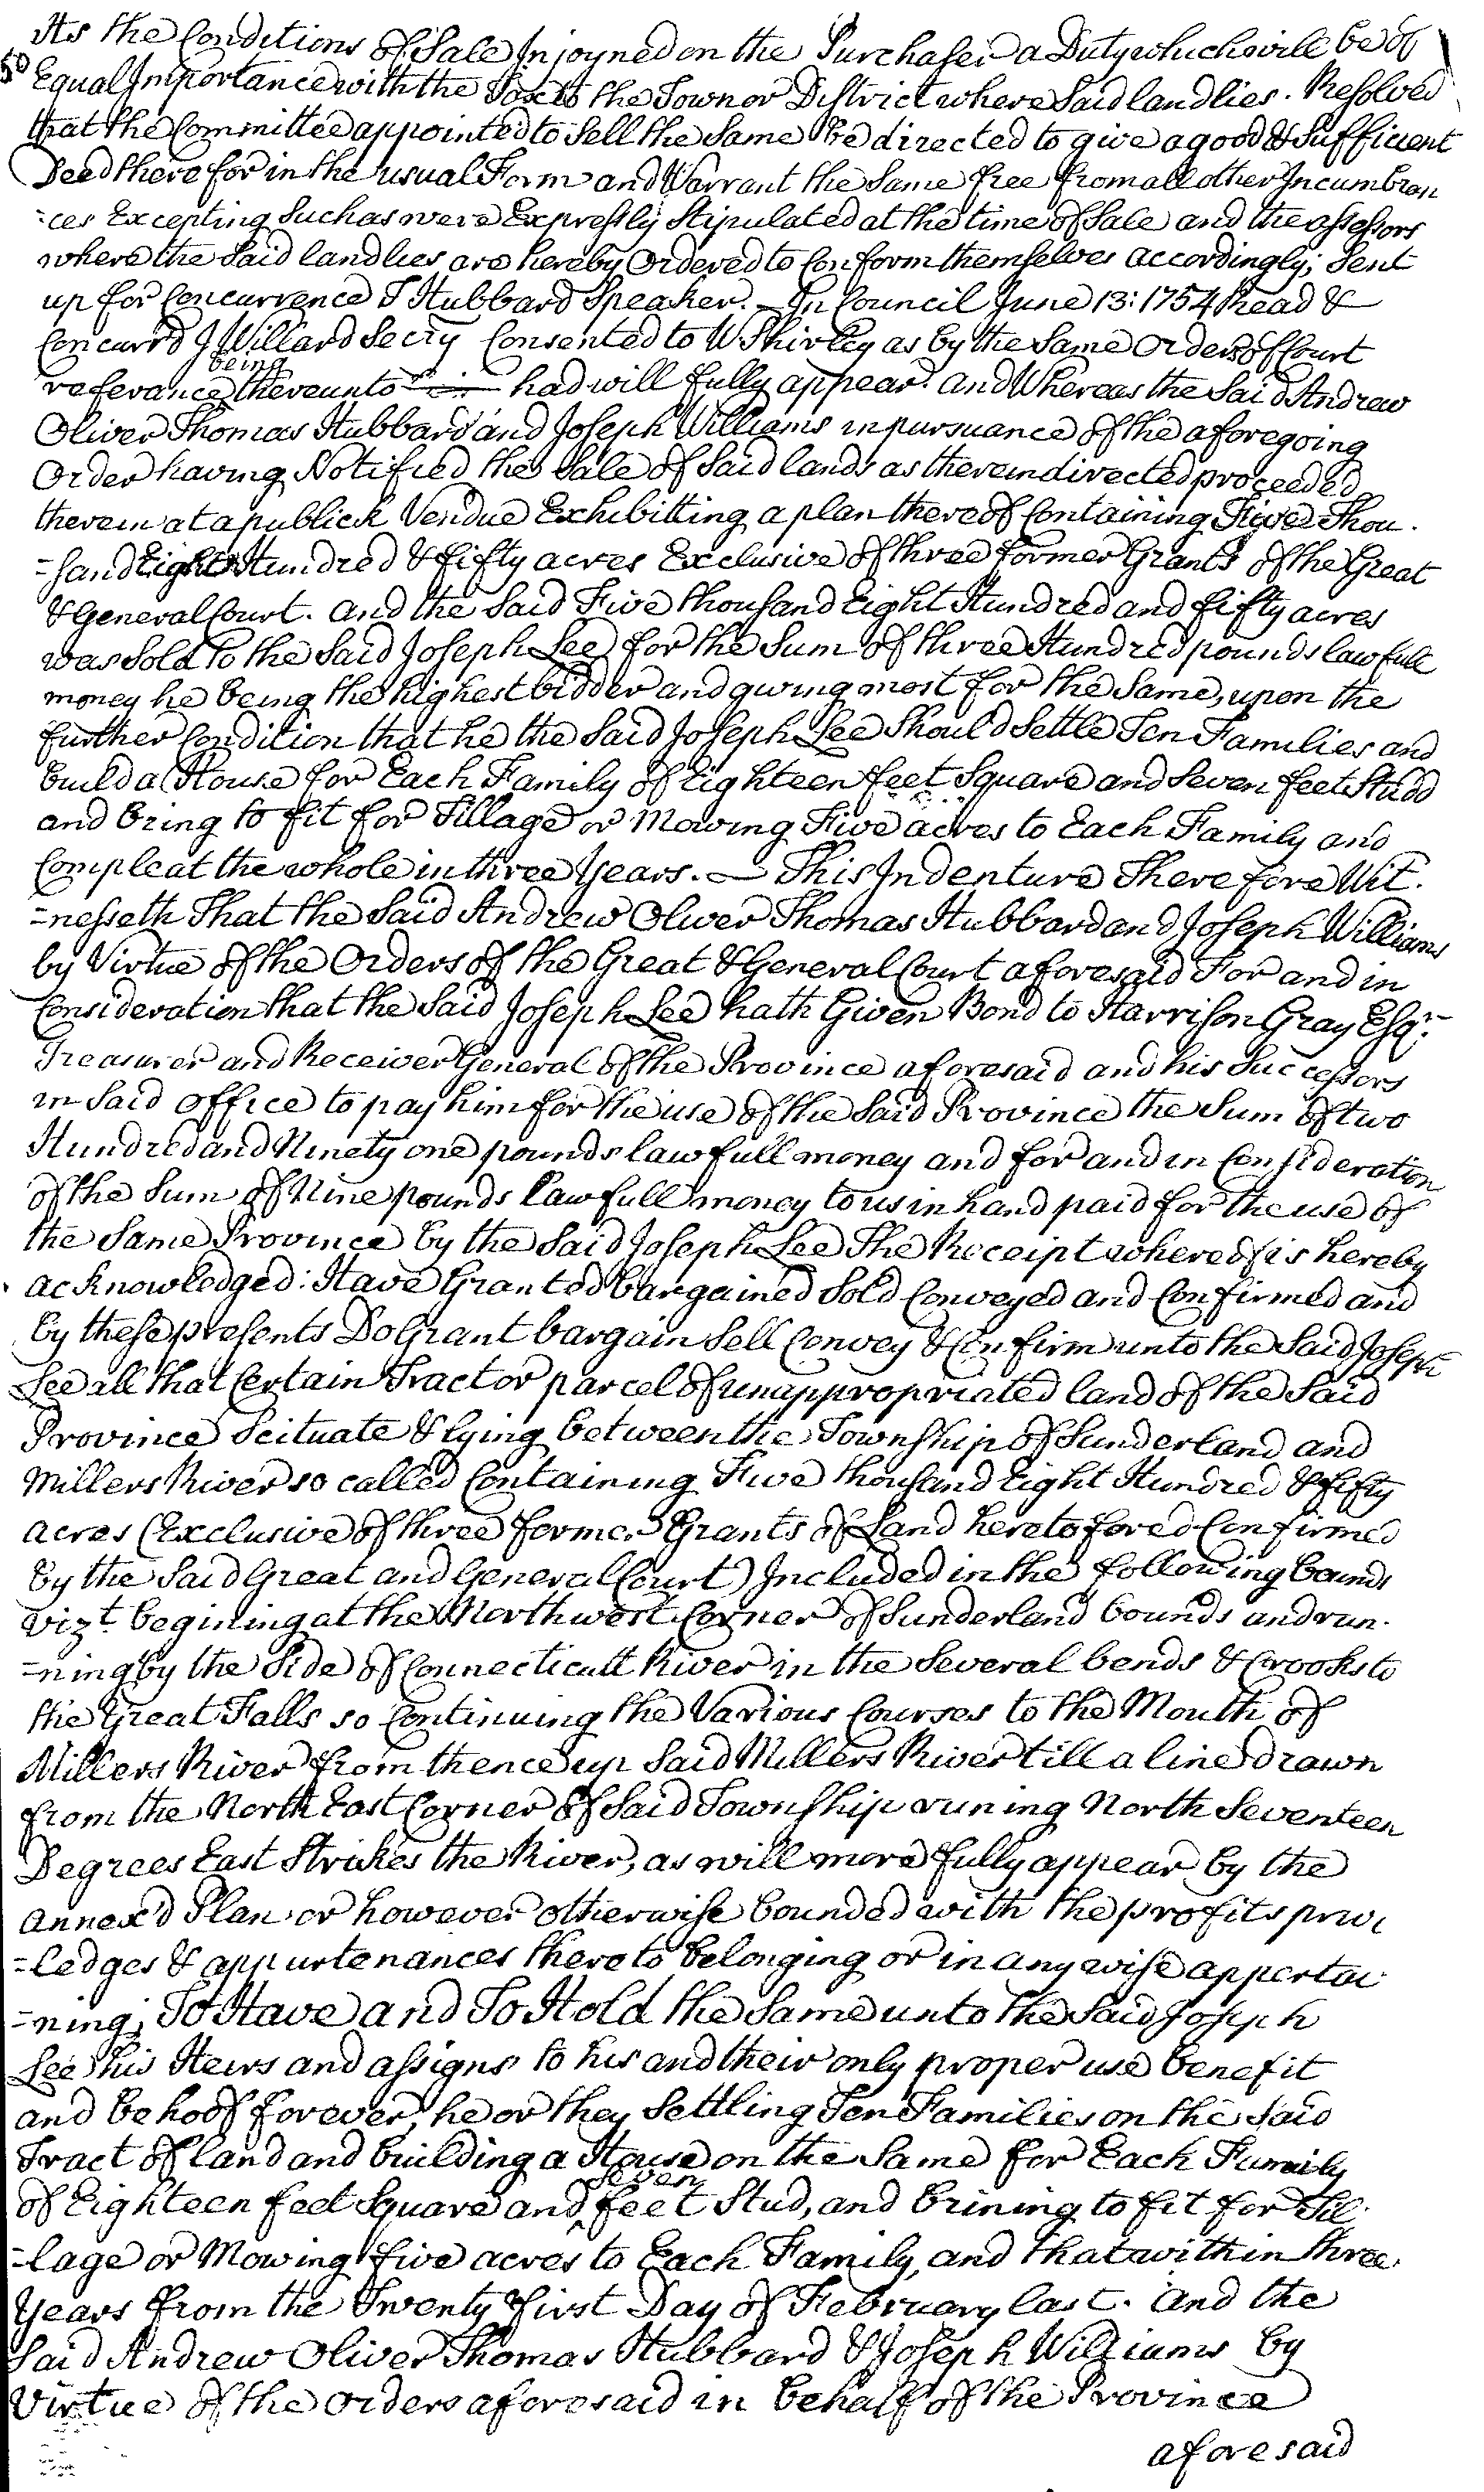 As the Conditions of Sale Injoyned on the Purchaser a Duty which will be of
50 Equal Importance with the Tax to the Town or District where Said land lies. Resolved
that the Committee appointed to Sell the Same be directed to give a good & Sufficient
Deed therefor in the usual Form and Warrant the Same free from all other Incumbran
=ces Excepting Such as were Expressly Stipulated at the time of Sale and the assessors
where the Said land lies are hereby Ordered to Conform themselves accordingly; Sent
up for Concurrence T Hubbard Speaker. — In Council June 13: 1754 Read &
Concurrd J Willard Secry Consented to W Shirley as by the Same Orders of Court
being
referance thereunto had will fully appear. and Whereas the Said Andrew
Oliver Thomas Hubbard and Joseph Williams in pursuance of the aforegoing
Order having Notified the Sale of Said lands as therein directed proceeded
therein at a publick Vendue Exhibitting a plan thereof Containing Five Thou.
=sand Eight Hundred & fifty acres Exclusive of three former Grants of the Great
& General Court. and the Said Five thousand Eight Hundred and fifty acres
was Sold to the Said Joseph Lee for the Sum of three Hundred pounds lawfull
money he being the highest bidder and giving most for the Same, upon the
further Condition that he the Said Joseph Lee Should Settle Ten Families and
build a House for Each Family of Eighteen feet Square and Seven feet Studd
and bring to fit for Tillage or Mowing Five acres to Each Family and
Compleat the whole in three Years. — This Indenture Therefore Wit.
=nesseth That the Said Andrew Oliver Thomas Hubbard and Joseph Williams
by Virtue of the Orders of the Great & General Court aforesaid For and in
Consideration that the Said Joseph Lee hath Given Bond to Harrison Gray Esqr.
Treasurer and Receiver General of the Province aforesaid and his Successors
in Said office to pay him for the use of the Said Province the Sum of two
Hundred and Ninety one pounds lawfull money and for and in Consideration
of the Sum of Nine pounds Lawfull money to us in hand paid for the use of
the Same Province by the Said Joseph Lee The Receipt whereof is hereby
acknowledged: Have Granted bargained Sold Conveyed and Confirmed and
by these presents Do Grant bargain Sell Convey & Confirm unto the Said Joseph
Lee all that Certain Tract or parcel of unappropriated land of the Said
Province Scituate & lying between the Township of Sunderland and
Millers River so called Containing Five thousand Eight Hundred & fifty
acres (Exclusive of three former Grants of Land heretofore Confirmed
by the Said Great and General Court) Included in the following bounds
vizt. begining at the Northwest Corner of Sunderland bounds and run.
=ning by the Side of Connecticutt River in the Several bends & Crooks to
the Great Falls so Continuing the Various Courses to the Mouth of
Millers River from thence up Said Millers River till a line drawn
from the North East Corner of Said Township runing North Seventeen
Degrees East Strikes the River, as will more fully appear by the
annex'd Plan or however otherwise bounded with the profits privi
=ledges & appurtenances thereto belonging or in any wise appertai
=ning; To Have and To Hold the Same unto the Said Joseph
Lee his Heirs and assigns to his and their only proper use benefit
and behoof forever, he or they Settling Ten Families on the Said
Tract of land and building a House on the Same for Each Family
seven
of Eighteen feet Square and ^ feet Stud, and brining to fit for Til
=lage or Mowing five acres to Each Family, and that within three
Years from the Twenty first Day of February last. and the
Said Andrew Oliver Thomas Hubbard & Joseph Williams by
Virtue of the orders aforesaid in behalf of the Province
aforesaid